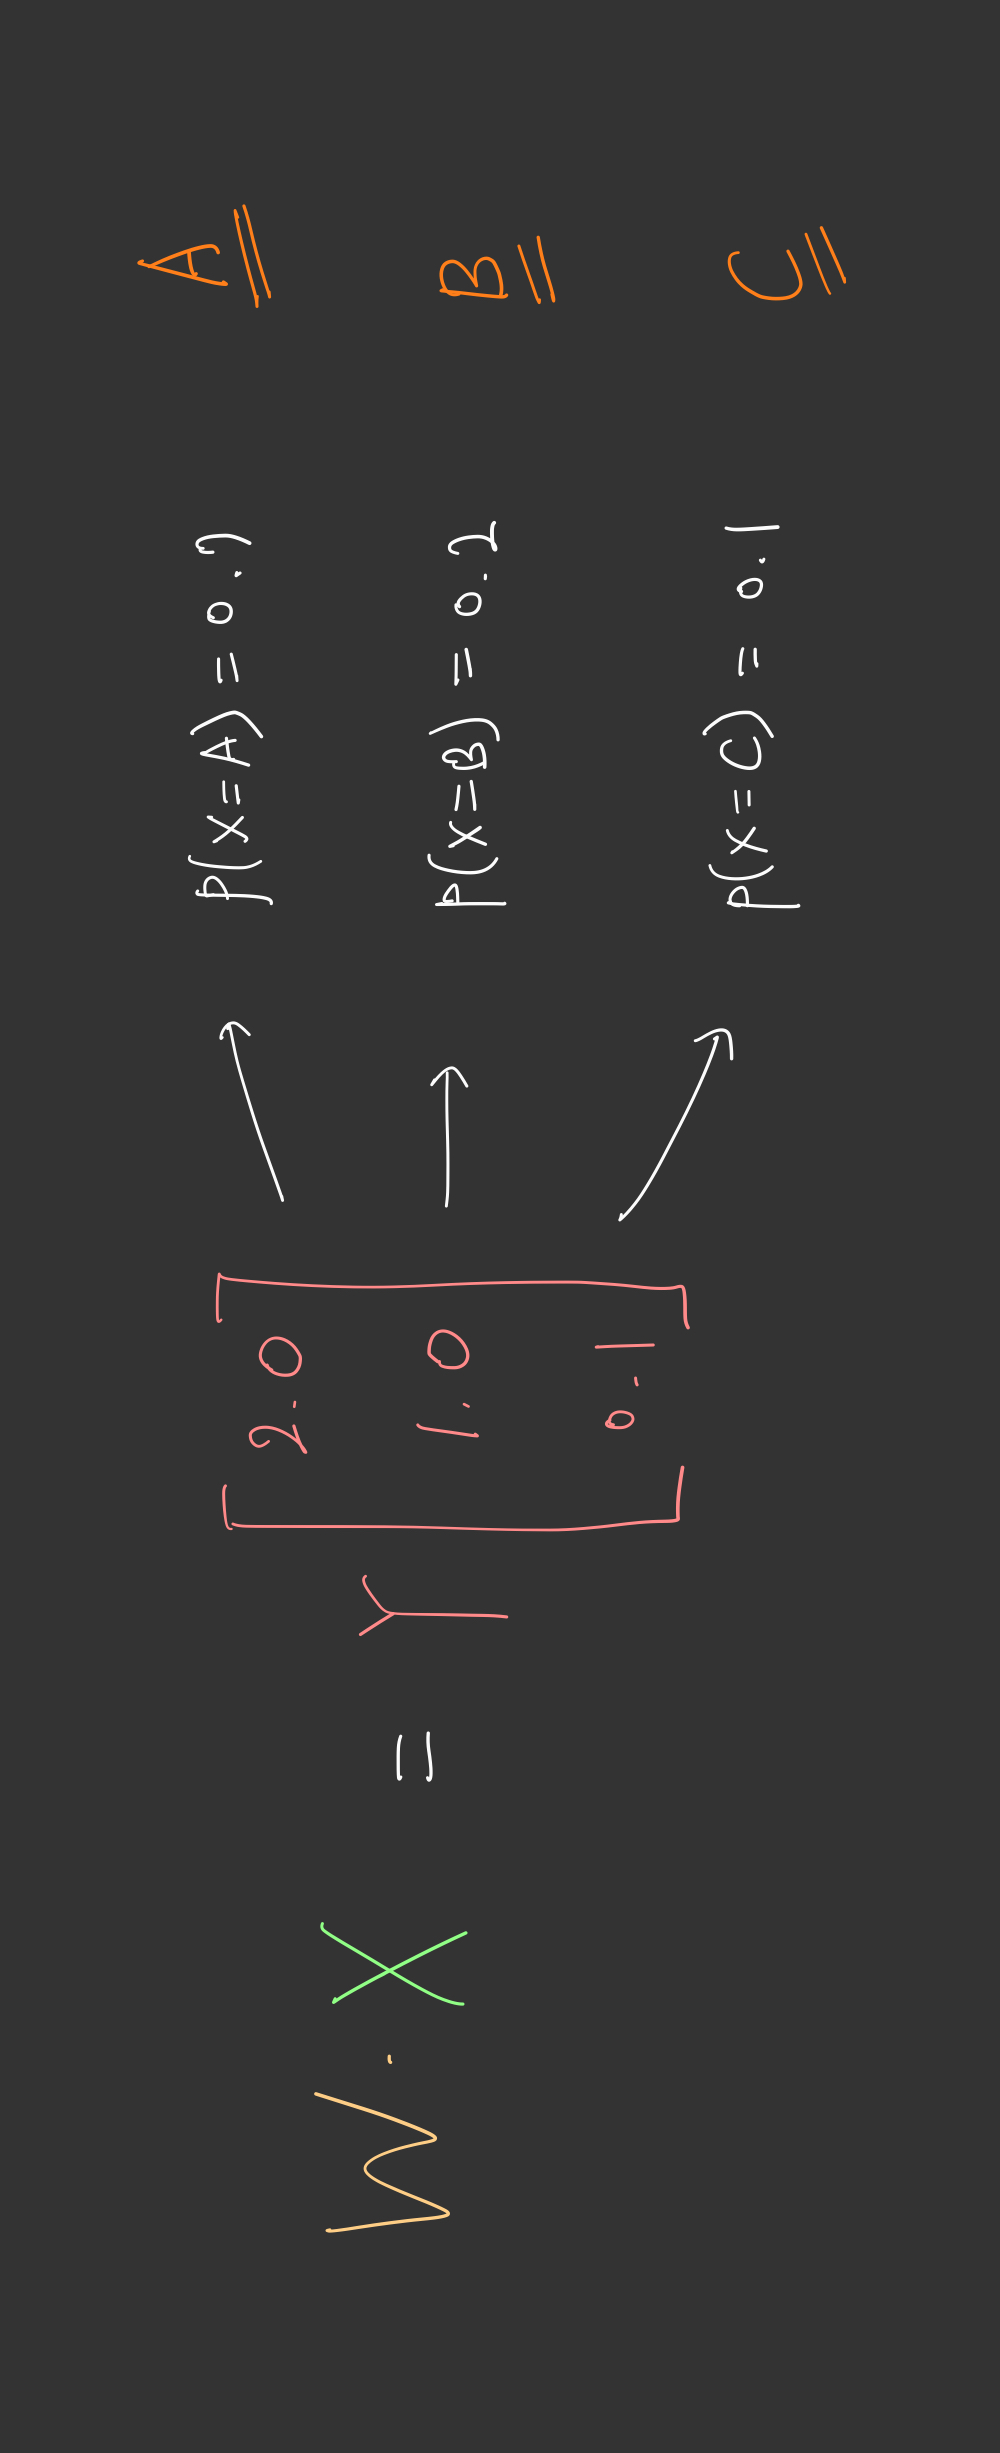 W · X = Y [2.0 1.0 0.1]
p(x=A) = 0.7 A
p(x=B) = 0.2 B
p(x=C) = 0.1 C